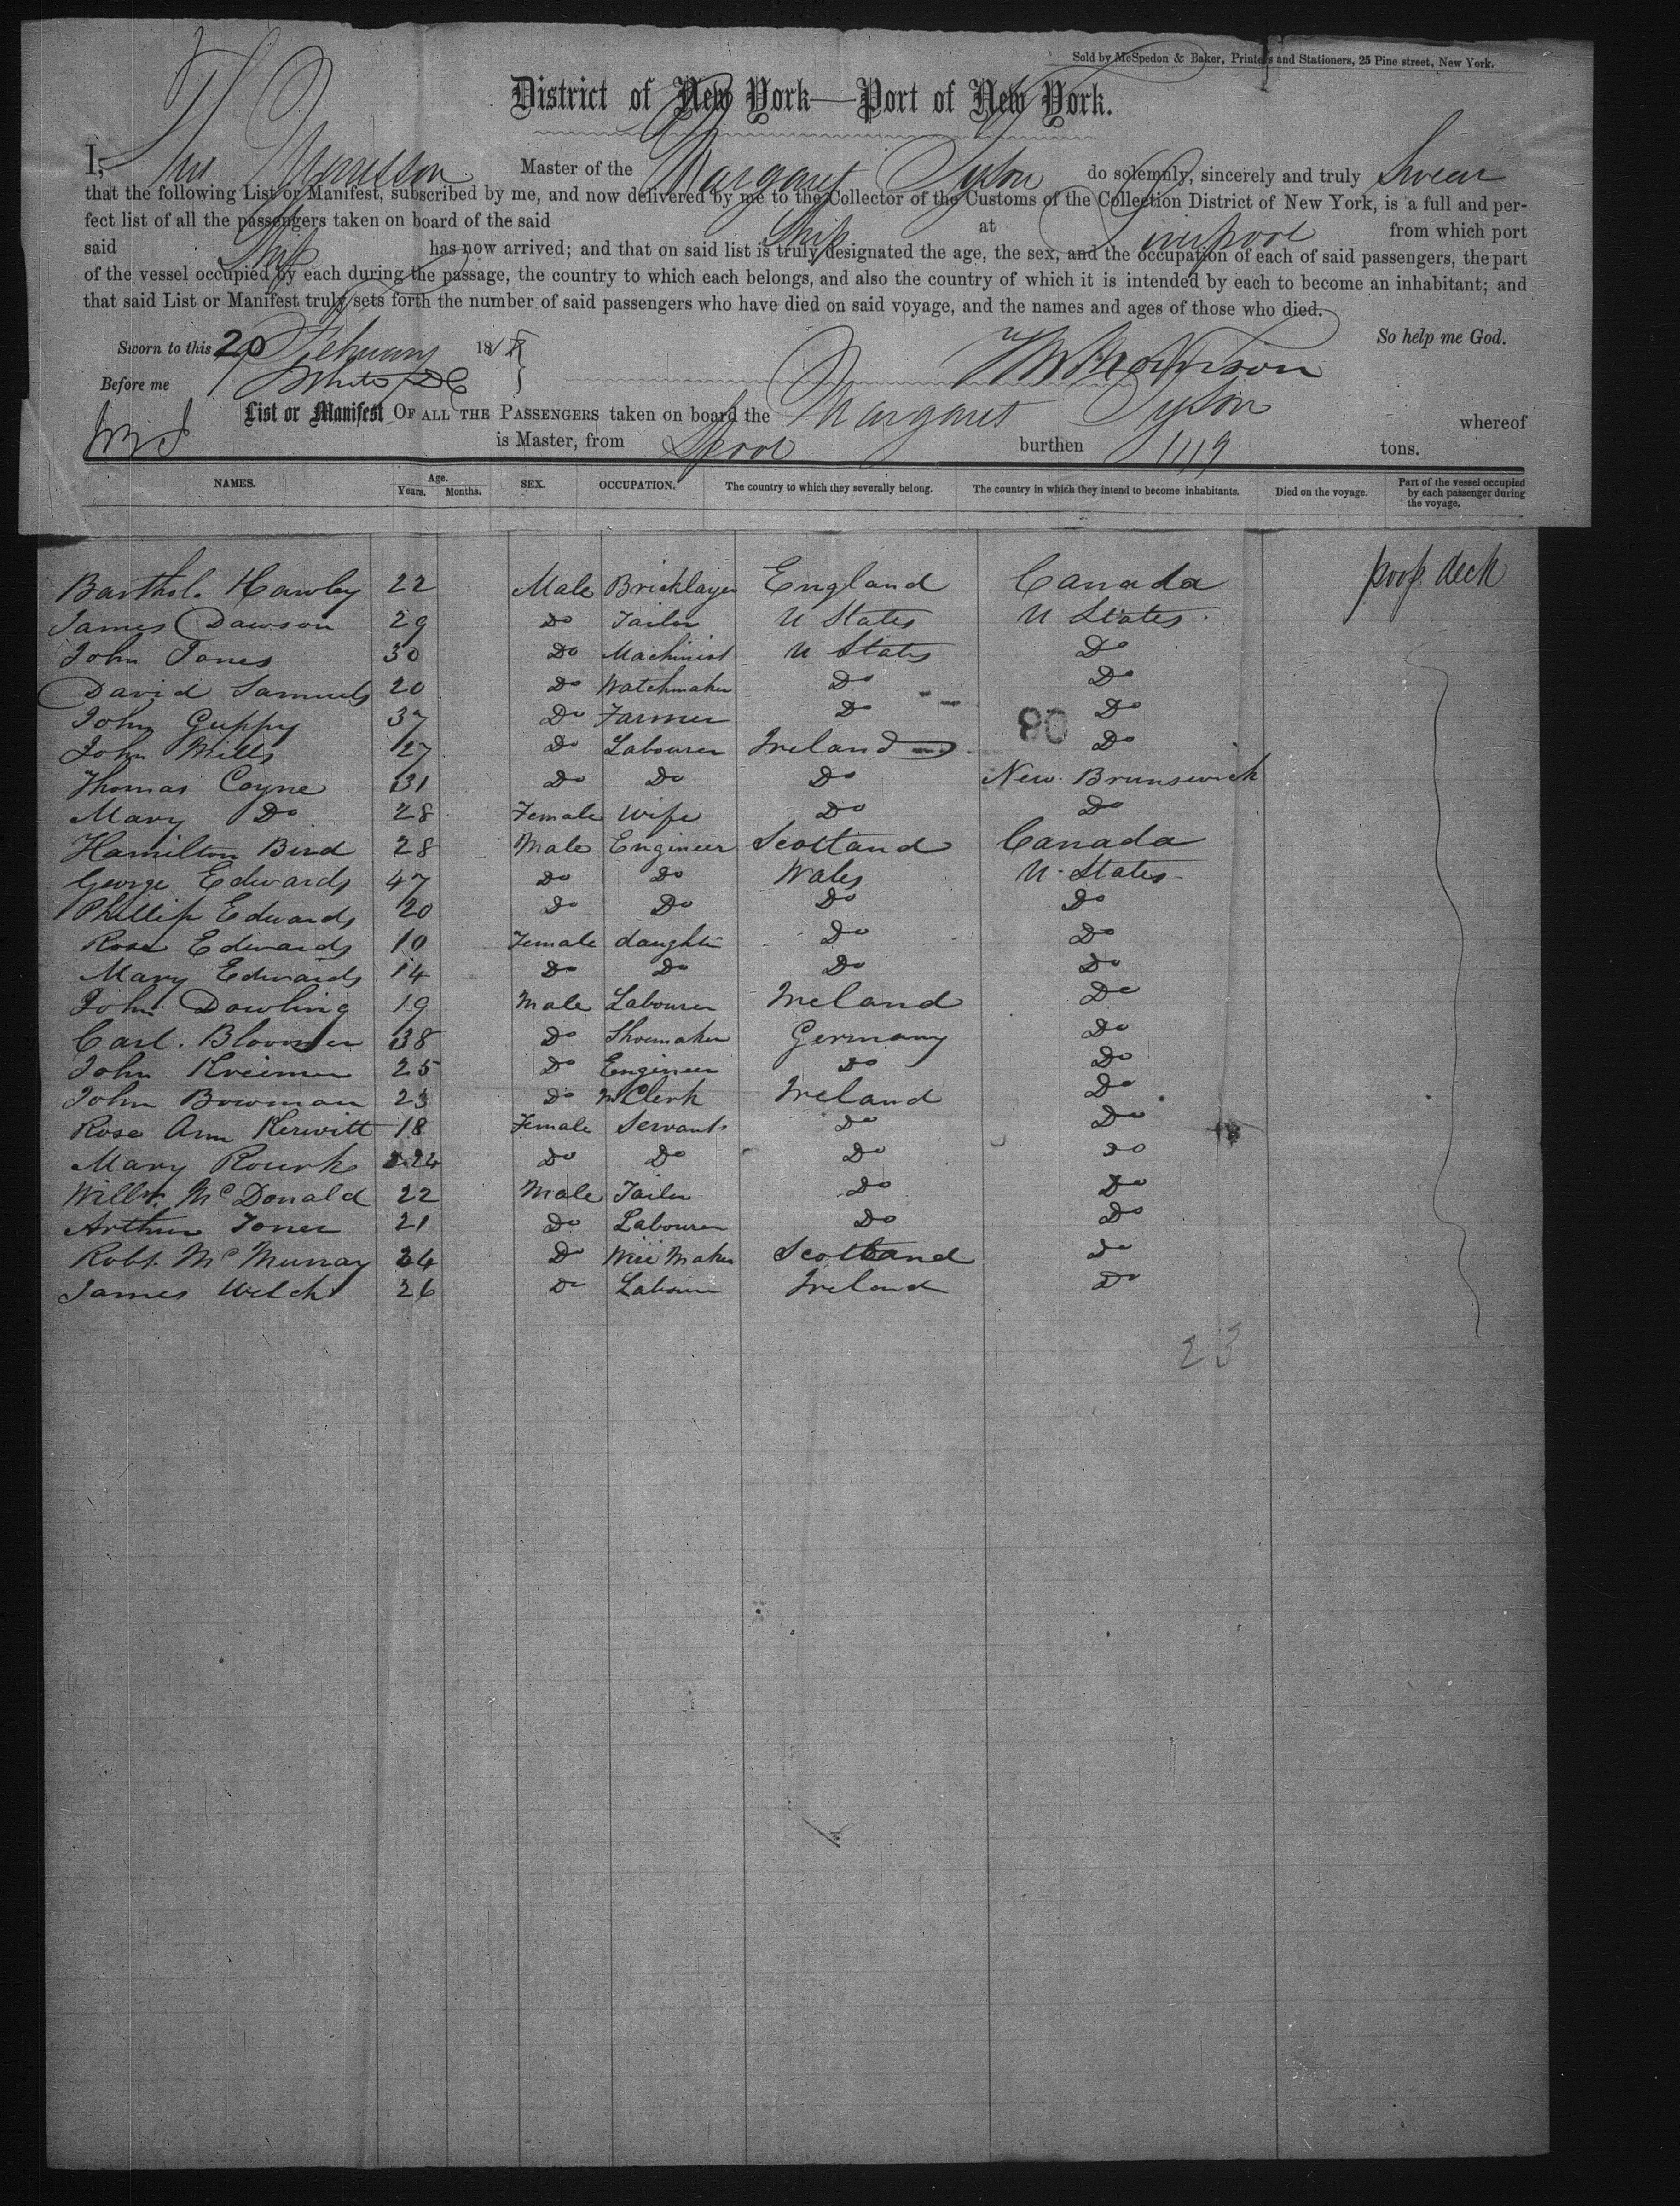 Sold by McSpedon & Baker, Printers and Stationers, 25 Pine street, New York.
District of New York—Port of New York.
I, Morrisson Master of the Margaret Tyson do solemnly, sincerely and truly Swear
that the following List or Manifest, subscribed by me, and now delivered by me to the Collector of the Customs of the Collection District of New York, is a full and per-
fect list of all the passengers taken on board of the said Ship at Liverpool from which port
said Ship has now arrived; and that on said list is truly designated the age, the sex, and the occupation of each of said passengers, the part
of the vessel occupied by each during the passage, the country to which each belongs, and also the country of which it is intended by each to become an inhabitant; and
that said List or Manifest truly sets forth the number of said passengers who have died on said voyage, and the names and ages of those who died.
So help me God.
Sworn to this 20 February 18
Before me White
Morrison
List or Manifest OF ALL THE PASSENGERS taken on board the Margaret Tyson whereof
is Master, from Lpool burthen 1119 tons.
NAMES. Age. Years. Months. SEX. OCCUPATION. The country to which they severally belong. The country in which they intend to become inhabitants. Died on the voyage. Part of the vessel occupied by each passenger during the voyage.
Barthol. Hawley 22 Male Bricklayer England Canada poop deck
James Dawson 29 Do Tailor U States U States
John Jones 30 Do Machinist U States Do
David Samuels 20 Do Watchmaker Do Do
John Guppy 37 Do Farmer Do Do
80
John Mills 27 Do Labourer Ireland Do
Thomas Coyne 31 Do Do Do New Brunswick
Mary Do 28 Female Wife Do Do
Hamilton Bird 28 Male Engineer Scotland Canada
George Edwards 47 Do Do Wales U. States
Phillip Edwards 20 Do Do Do Do
Rosa Edwards 10 Female daughter Do Do
Mary Edwards 14 Do Do Do Do
John Dowling 19 Male Labourer Ireland Do
Carl. 38 Do Shoemaker Germany Do
John Kreimer 25 Do Engineer Do Do
John Bowman 23 Do Clerk Ireland Do
Rose Ann Kerwitt 18 Female Servant Do Do
Mary Rourke 24 Do Do Do Do
Willm. McDonald 22 Male Tailor Do Do
Arthur Toner 21 Do Labourer Do Do
Robt. McMurray 24 Do Wire Maker Scotland Do
James Welch 26 Do Labourer Ireland Do
23